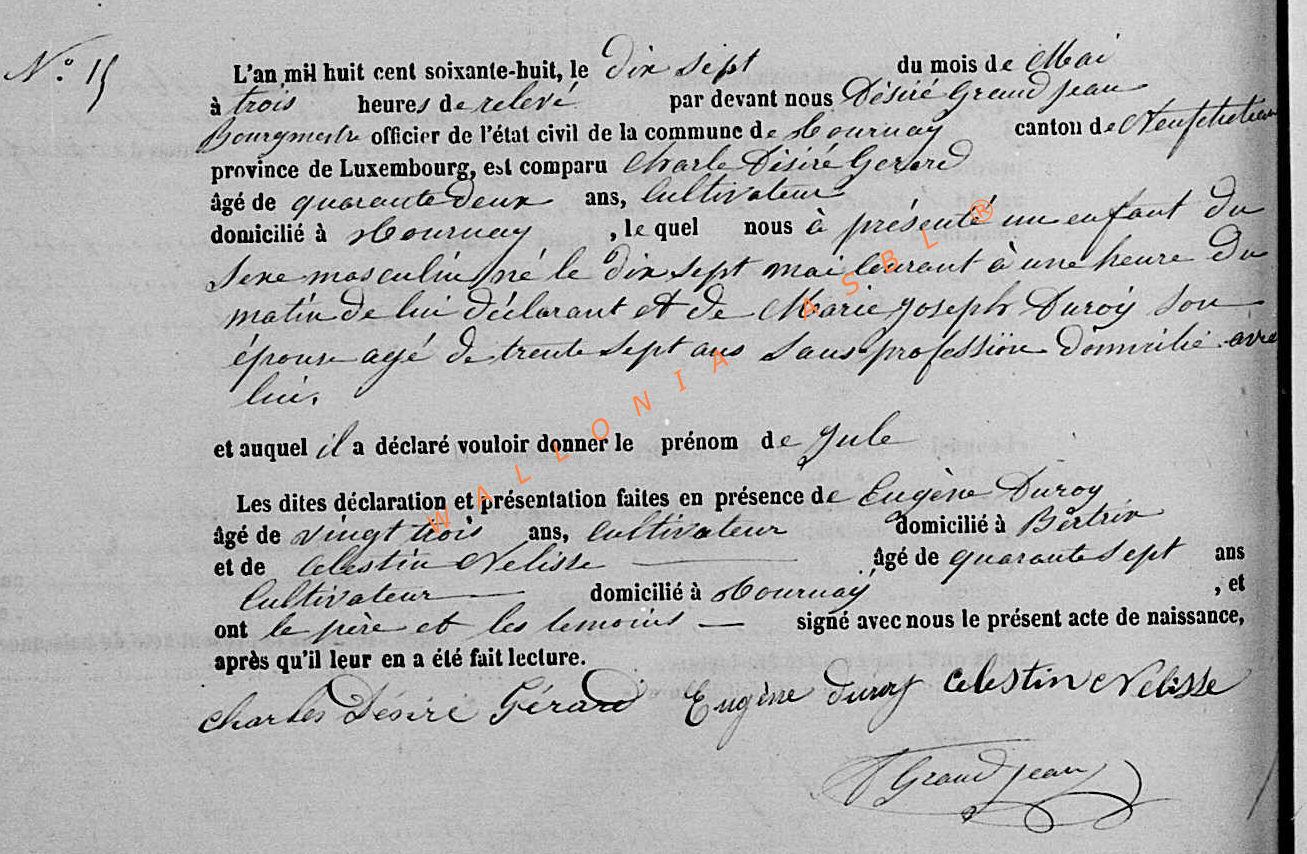 N.° 15
L'an mil huit cent soixante-huit, le dix sept du mois de Mai
à trois heures de relevé par devant nous Désiré Grandjean
Bourgmestre officier de l'état civil de la commune de Tournay canton de Neufchateau
province de Luxembourg, est comparu Charle Désiré Gerard
âgé de quarante deux ans, Cultivateur
domicilié à Tournay, le quel nous à présenté un enfant du
sexe masculin né le dix sept mai Courant à une heure du
matin de lui déclarant et de Marie Joseph Duroy son
épouse agé de trente sept ans sans profession domicilié avec
lui.
et auquel il a déclaré vouloir donner le prénom de Jule
Les dites déclaration et présentation faites en présence de Eugène Duroy
âgé de vingt trois ans, Cultivateur domicilié à Bertrix
et de Celestin Nelisse âgé de quarante sept ans
Cultivateur domicilié à Tournay, et
ont le père et les temoins signé avec nous le présent acte de naissance,
après qu'il leur en a été fait lecture.
Charles Desiré Gérard Eugène duroy Celestin Nelisse
Grandjean
WALLONIA ASBL ®